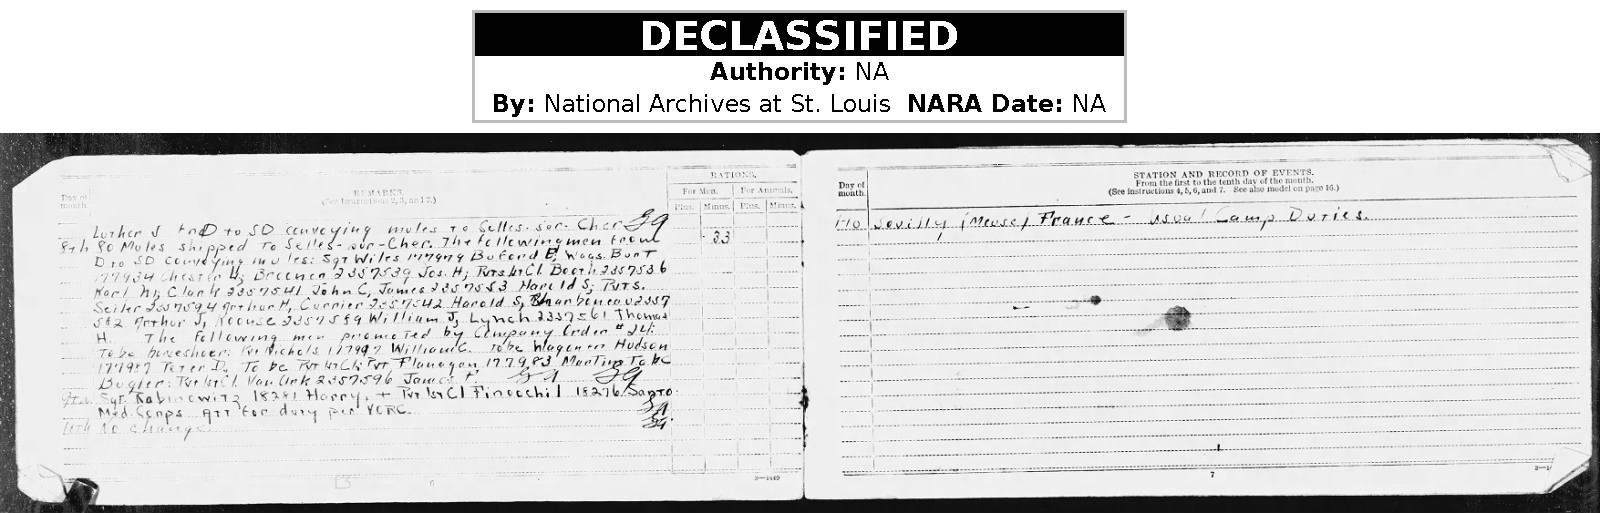 DECLASSIFIED
Authority: NA
By: National Archives at St. Louis NARA Date: NA
Day of month.
REMARKS.
(See Instructions 2, 3, and 7.)
RATIONS.
For Men.
For Animals.
Plus.
Minus.
Plus.
Minus.
Luther J fr D to SD conveying mules to Selles-sur-Cher
8th 80 Mules shipped to Selles-sur-Cher. The following men from
33
D to SD conveying mules: Sgt Wiles 177979 Buford E, Wags. Bunt
177934 Chester H; Breener 2357539 Jos. H; Pvts 1st Cl. Booth 2357536
Karl W; Clark 2357541 John C, James 2357553 Harold S; Pvts.
Seiler 2357594 Arthur H, Currier 2357542 Harold S, Charboneau 2357
582 Arthur J, Krouse 2357589 William J, Lynch 2357561 Thomas
H. The following men promoted by Company Order #24:
To be horseshoer: Pvt Nichols 177997 William C. To be Wagoner Hudson
177987 Peter D. To be Pvt 1st Cl: Pvt Flanagan 177983 Martin To be
Bugler: Pvt 1st Cl Van Ark 2357596 James P.
9th Sgt. Rabinowitz 18281 Harry, + Pvt 1st Cl Finocchi 18276 Santo
Med. Corps att for duty per VCRC.
10th No change
6
3—1449
STATION AND RECORD OF EVENTS.
From the first to the tenth day of the month.
(See instructions 4, 5, 6, and 7. See also model on page 16.)
Day of month.
1-10 Sovilly (Meuse) France - usual Camp Duties.
7